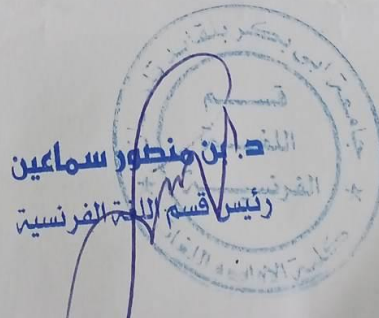 جامعة أبي بكر بلقايد
قسم
اللغة
الفرنسية
د.بن منصور سماعين
رئيس قسم اللغة الفرنسية